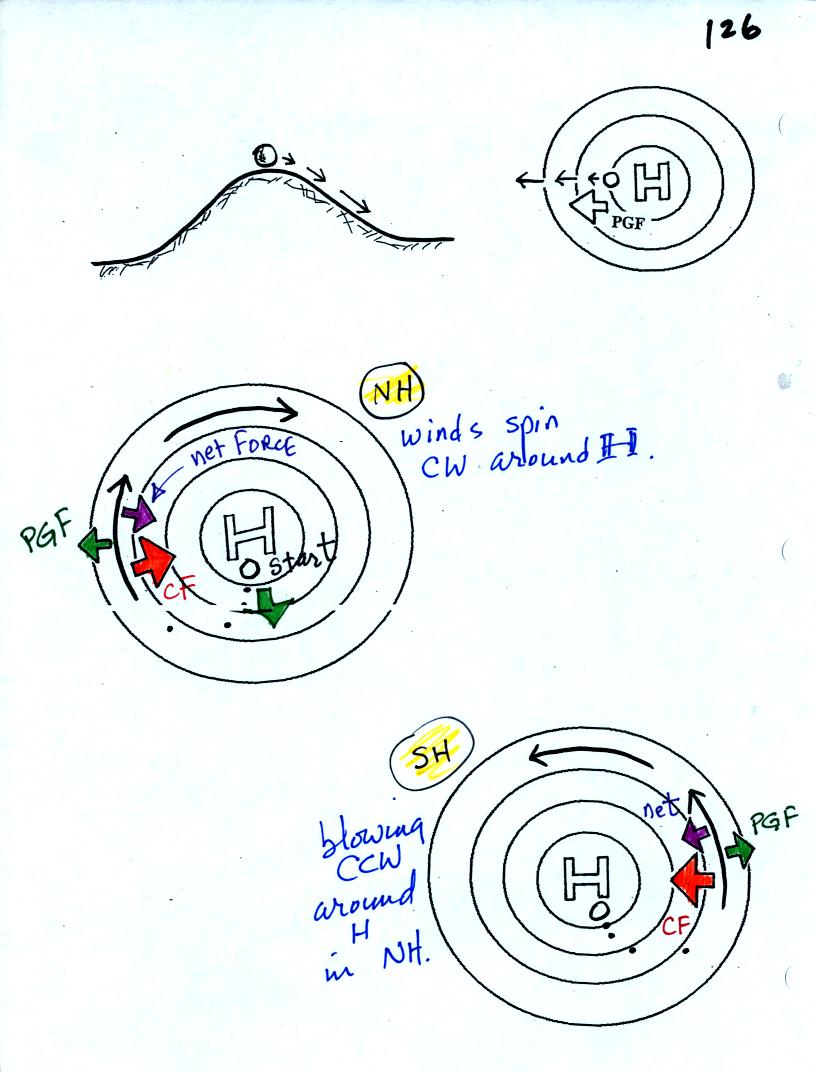 126
H
PGF
NH
winds spin
CW around H.
net FORCE
PGF
H
start
CF
SH
blowing
CCW
around
H
in NH.
net
PGF
H
CF